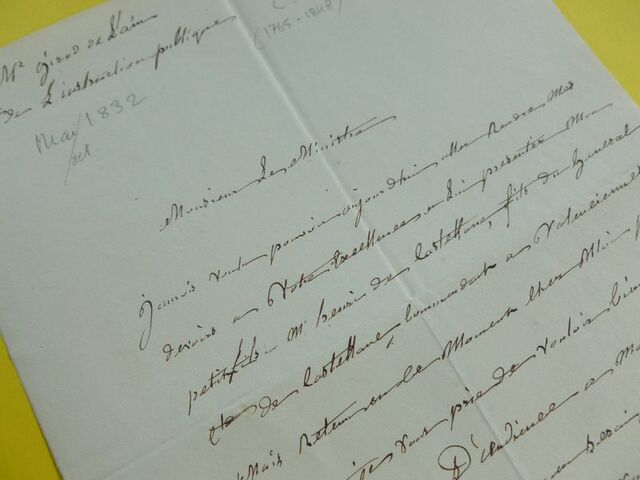 (1765-1848)
Mr Girod de l'ain
de l'instruction publique
Mai/1832
oct.
Monsieur Le Ministre
j'aurois voulu pouvoir aujourd'hui aller Rendre Mes
devoirs a Votre Excellence en lui presentant Mon
petit fils Mr henri de Castellane, fils du General
Cte de Castellane, Commandant a Valenciennes
Mais Retenu en Ce Moment Chez Moi
je vous prie de vouloir bien
D'audience a M
besoin